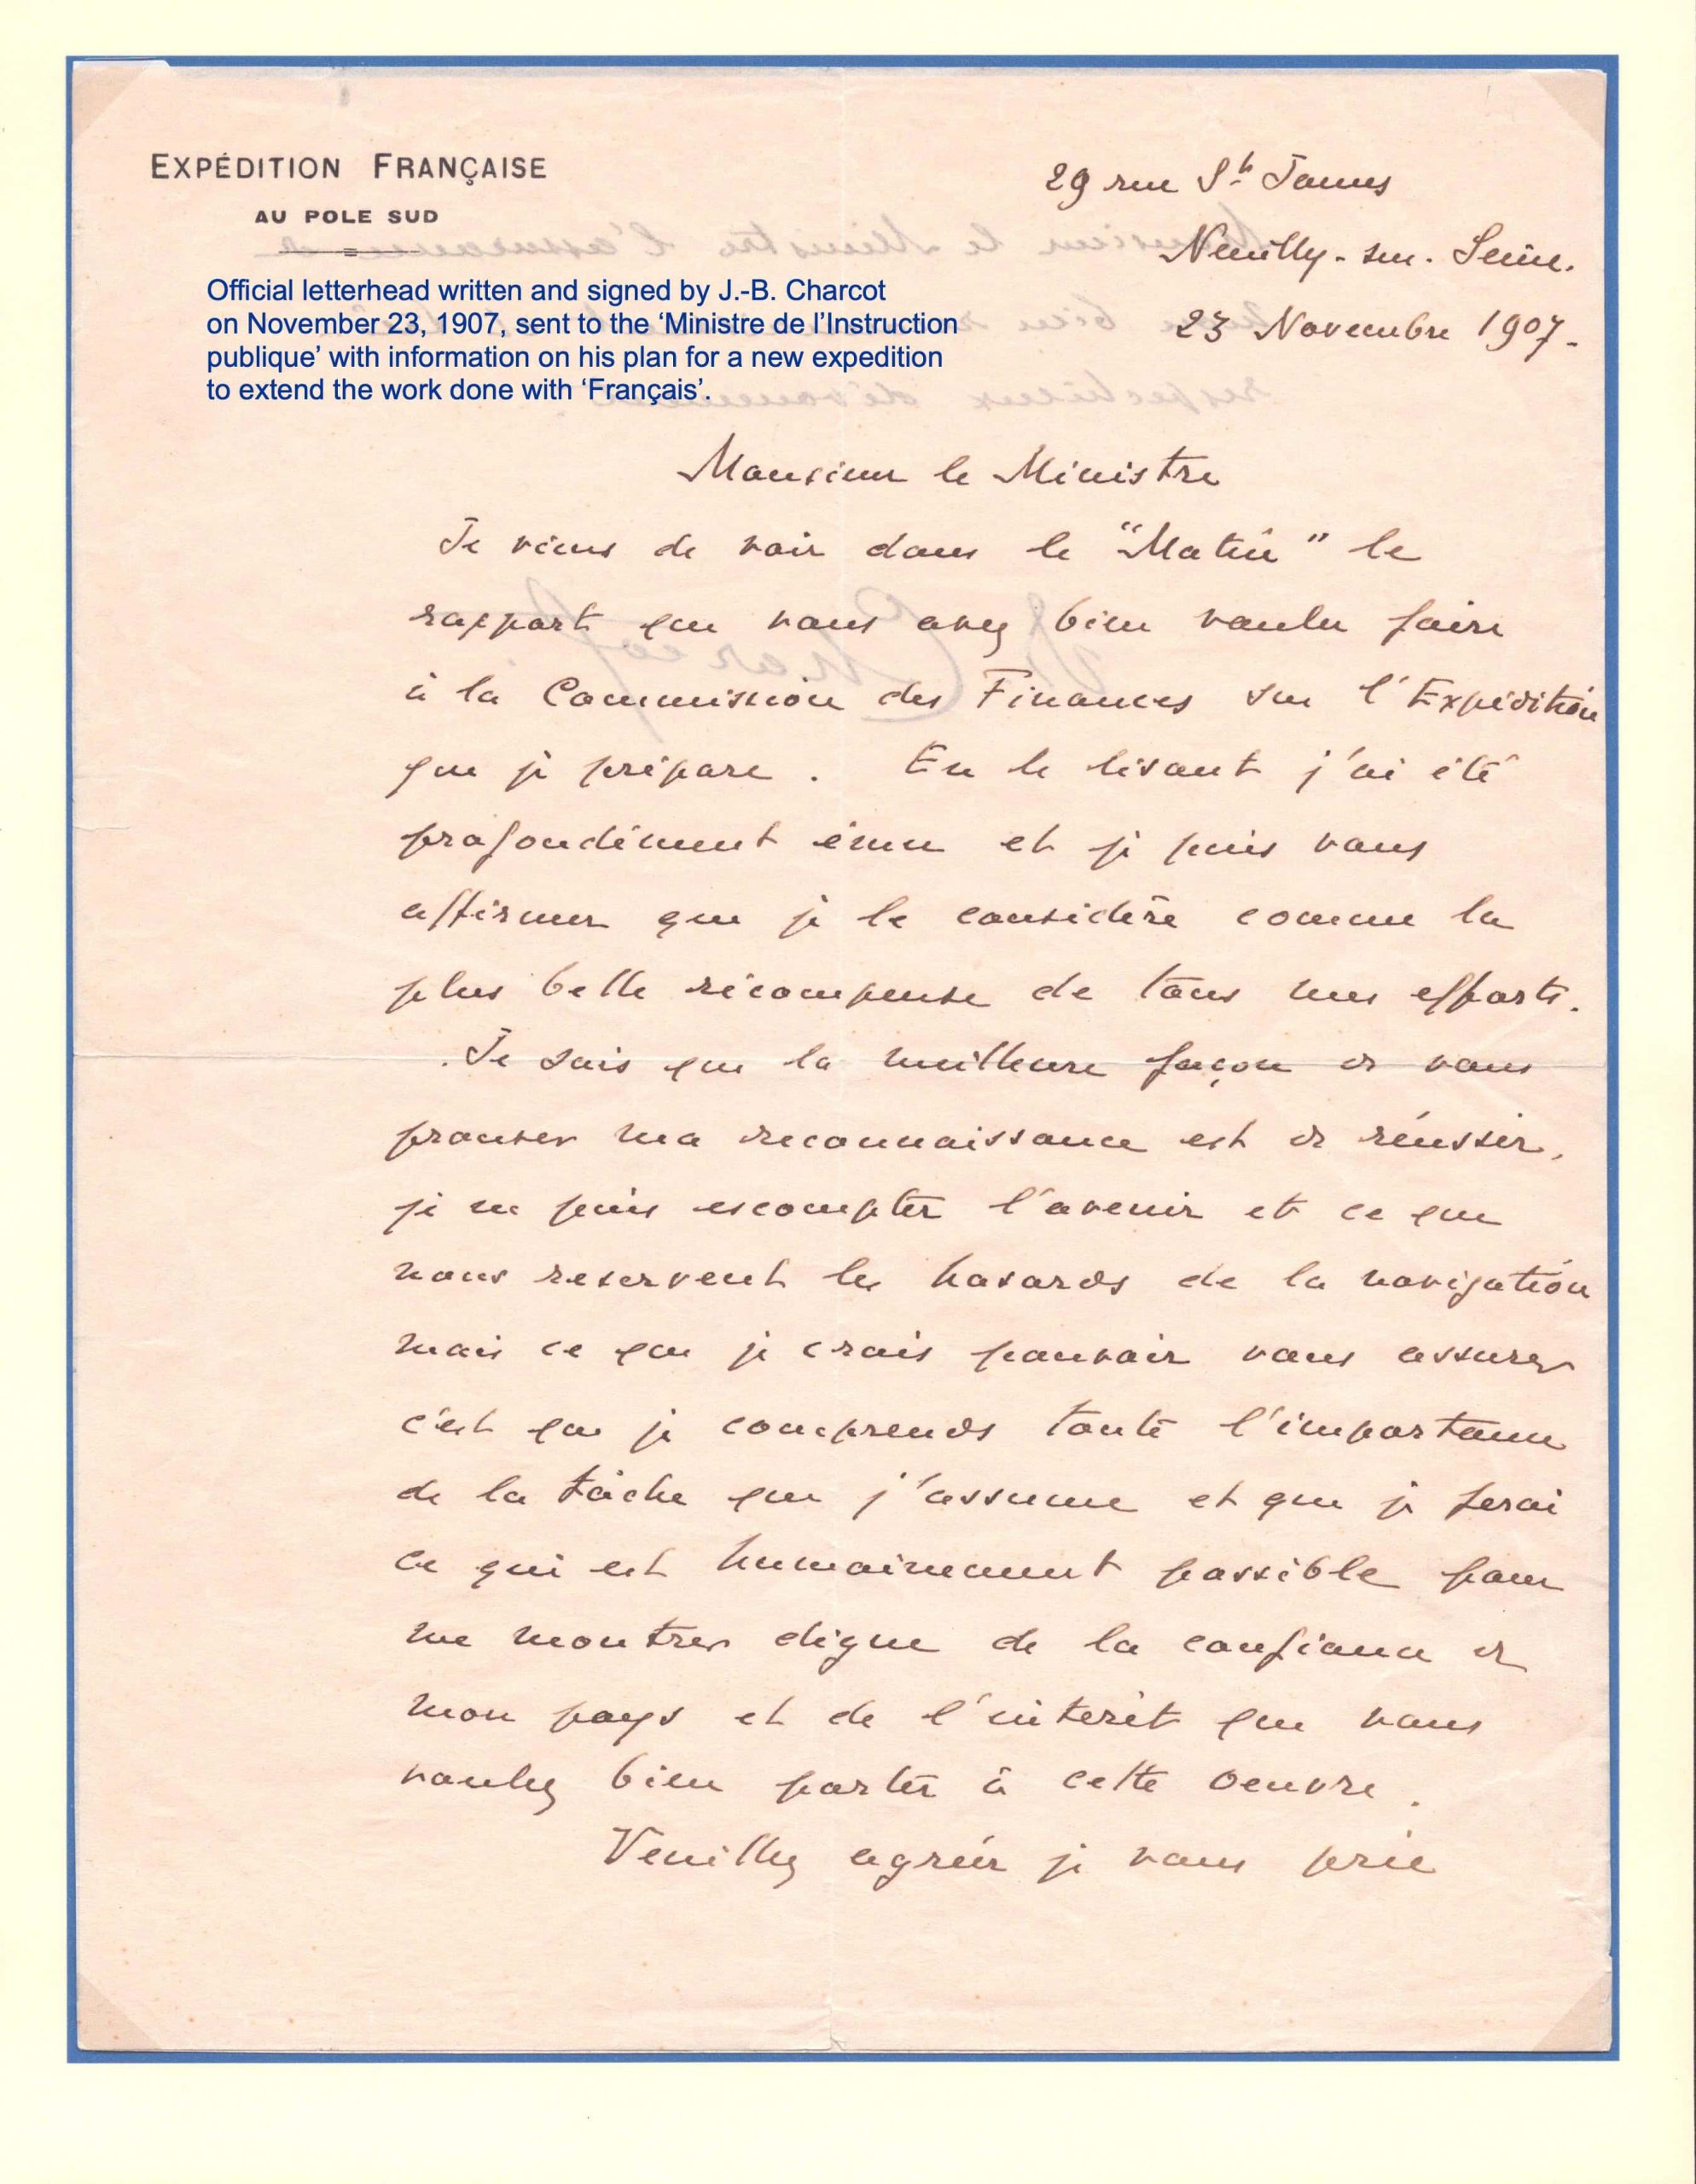 EXPÉDITION FRANÇAISE
AU POLE SUD
29 rue St James
Neuilly-sur-Seine.
23 Novembre 1907-
Official letterhead written and signed by J.-B. Charcot
on November 23, 1907, sent to the ‘Ministre de l’Instruction
publique’ with information on his plan for a new expedition
to extend the work done with ‘Français’.
Monsieur le Ministre
Je viens de voir dans le "Matin" le
rapport que vous avez bien voulu faire
à la Commission des Finances sur l'Expédition
que je prépare. En le lisant j'ai été
profondément ému et je puis vous
affirmer que je le considère comme la
plus belle récompense de tous mes efforts.
Je sais que la meilleure façon de vous
prouver ma reconnaissance est de réussir,
je ne puis escompter l'avenir et ce que
nous reservent les hasards de la navigation
mais ce que je crois pouvoir vous assurer
c'est que je comprends toute l'importance
de la tâche que j'assume et que je ferai
ce qui est humainement possible pour
me montrer digne de la confiance de
mon pays et de l'interêt que vous
voulez bien porter à cette oeuvre.
Veuillez agréer je vous prie